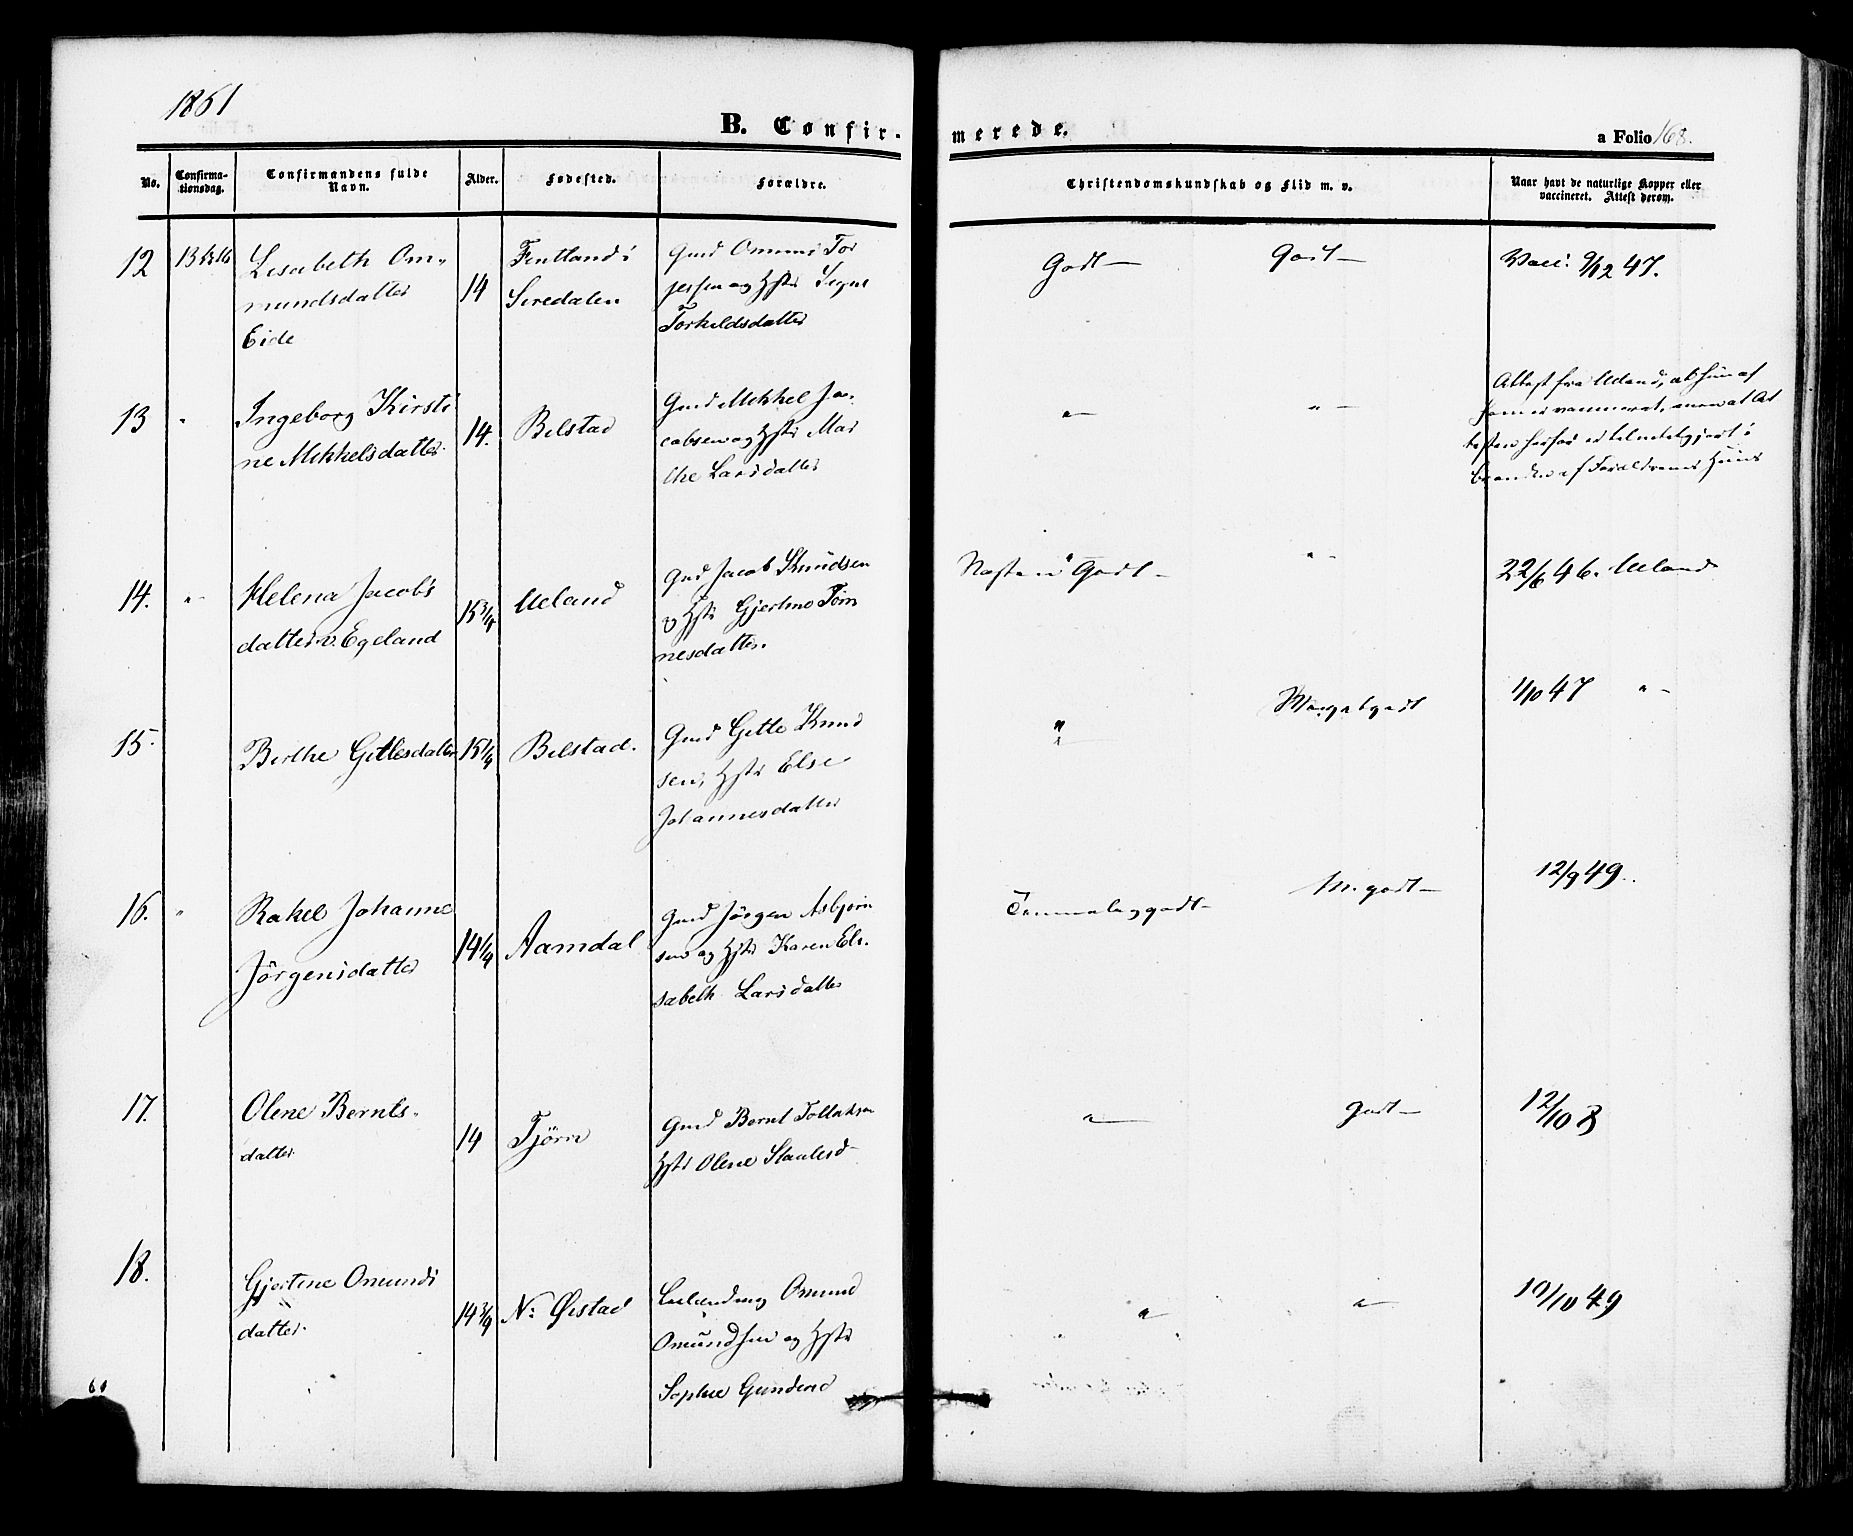 1861
B. Confirmerede.
a Folio 168.
No.
Confirmationsdag.
Confirmandens fulde Navn.
Alder.
Fødested.
Forældre.
Christendomskundskab og Flid m. v.
Naar havt de naturlige Kopper eller vaccineret. Attest derom.
12
Lisabeth Om„
mundsdatter
Eide
14
Fintland i
Siredalen
Gmd Ommun Tor
jersen og Hstr Signe
Torkildsdatter
Godt —
Godt —
Vacc: 9/12 47.
13
"
Ingeborg Kirsti
ne Mikkelsdatter
14.
Bilstad
Gmd Mikkel Ja„
cobsen og Hstr Mar
the Larsdatter
" —
" —
Attest fra Ueland, at hun af
ham er vaccineret, men at At
testen herfor er tilintetgjort i
Branden af Forældrenes Huus
14.
" -
Helena Jacobs
datter v. Egeland
15 3/4
Ueland
Gmd Jacob Knudsen
og Hstr Gjertine Tøn
nesdatter.
Næsten Godt —
" -
22/6 46. Ueland
15.
Birthe Gitlesdatter
15 1/4
Bilstad.
Gmd Gitle Knud
sen, Hstr Else
Johannesdatter
"
Meget godt
1/10 47 " -
16.
"
Rakel Johanne
Jörgensdatter
14 1/4
Aamdal
Gmd Jörgen Asbjörn
sen og Hstr Karen Eli„
sabeth Larsdatter
Temmelig godt —
M. godt —
12/9 49.
17.
Olene Bernts„
datter
14
Tjörn
Gmd Bernt Tollaksen
Hstr Olene Staalesd —
" —
godt —
12/10 8
18.
Gjertine Omunds
datter.
14 3/4
N: Øistad
Omund
Omundsen og Hstr
Sophie Gundersd
"
" —
19/10 49